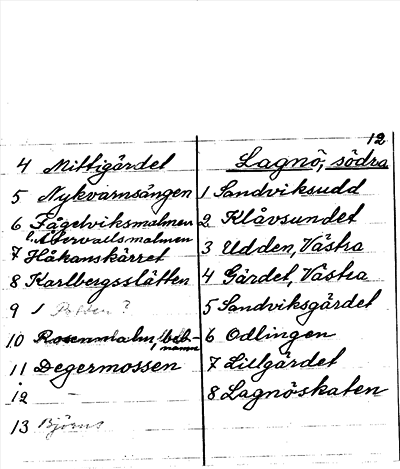 12
4 Mittigärdet
5 Nykvarnsängen
6 Fågelviksmalmen
7 Håkanskärret
8 Karlbergsslätten
9
10 Rosenmalm, beb-
namn
11 Degermossen
12 —
13 Björns
Lagnö, södra
1 Sandviksudd
2 Klåvsundet
3 Udden, Västra
4 Gärdet, Västra
5 Sandviksgärdet
6 Odlingen
7 Lillgärdet
8 Lagnöskaten